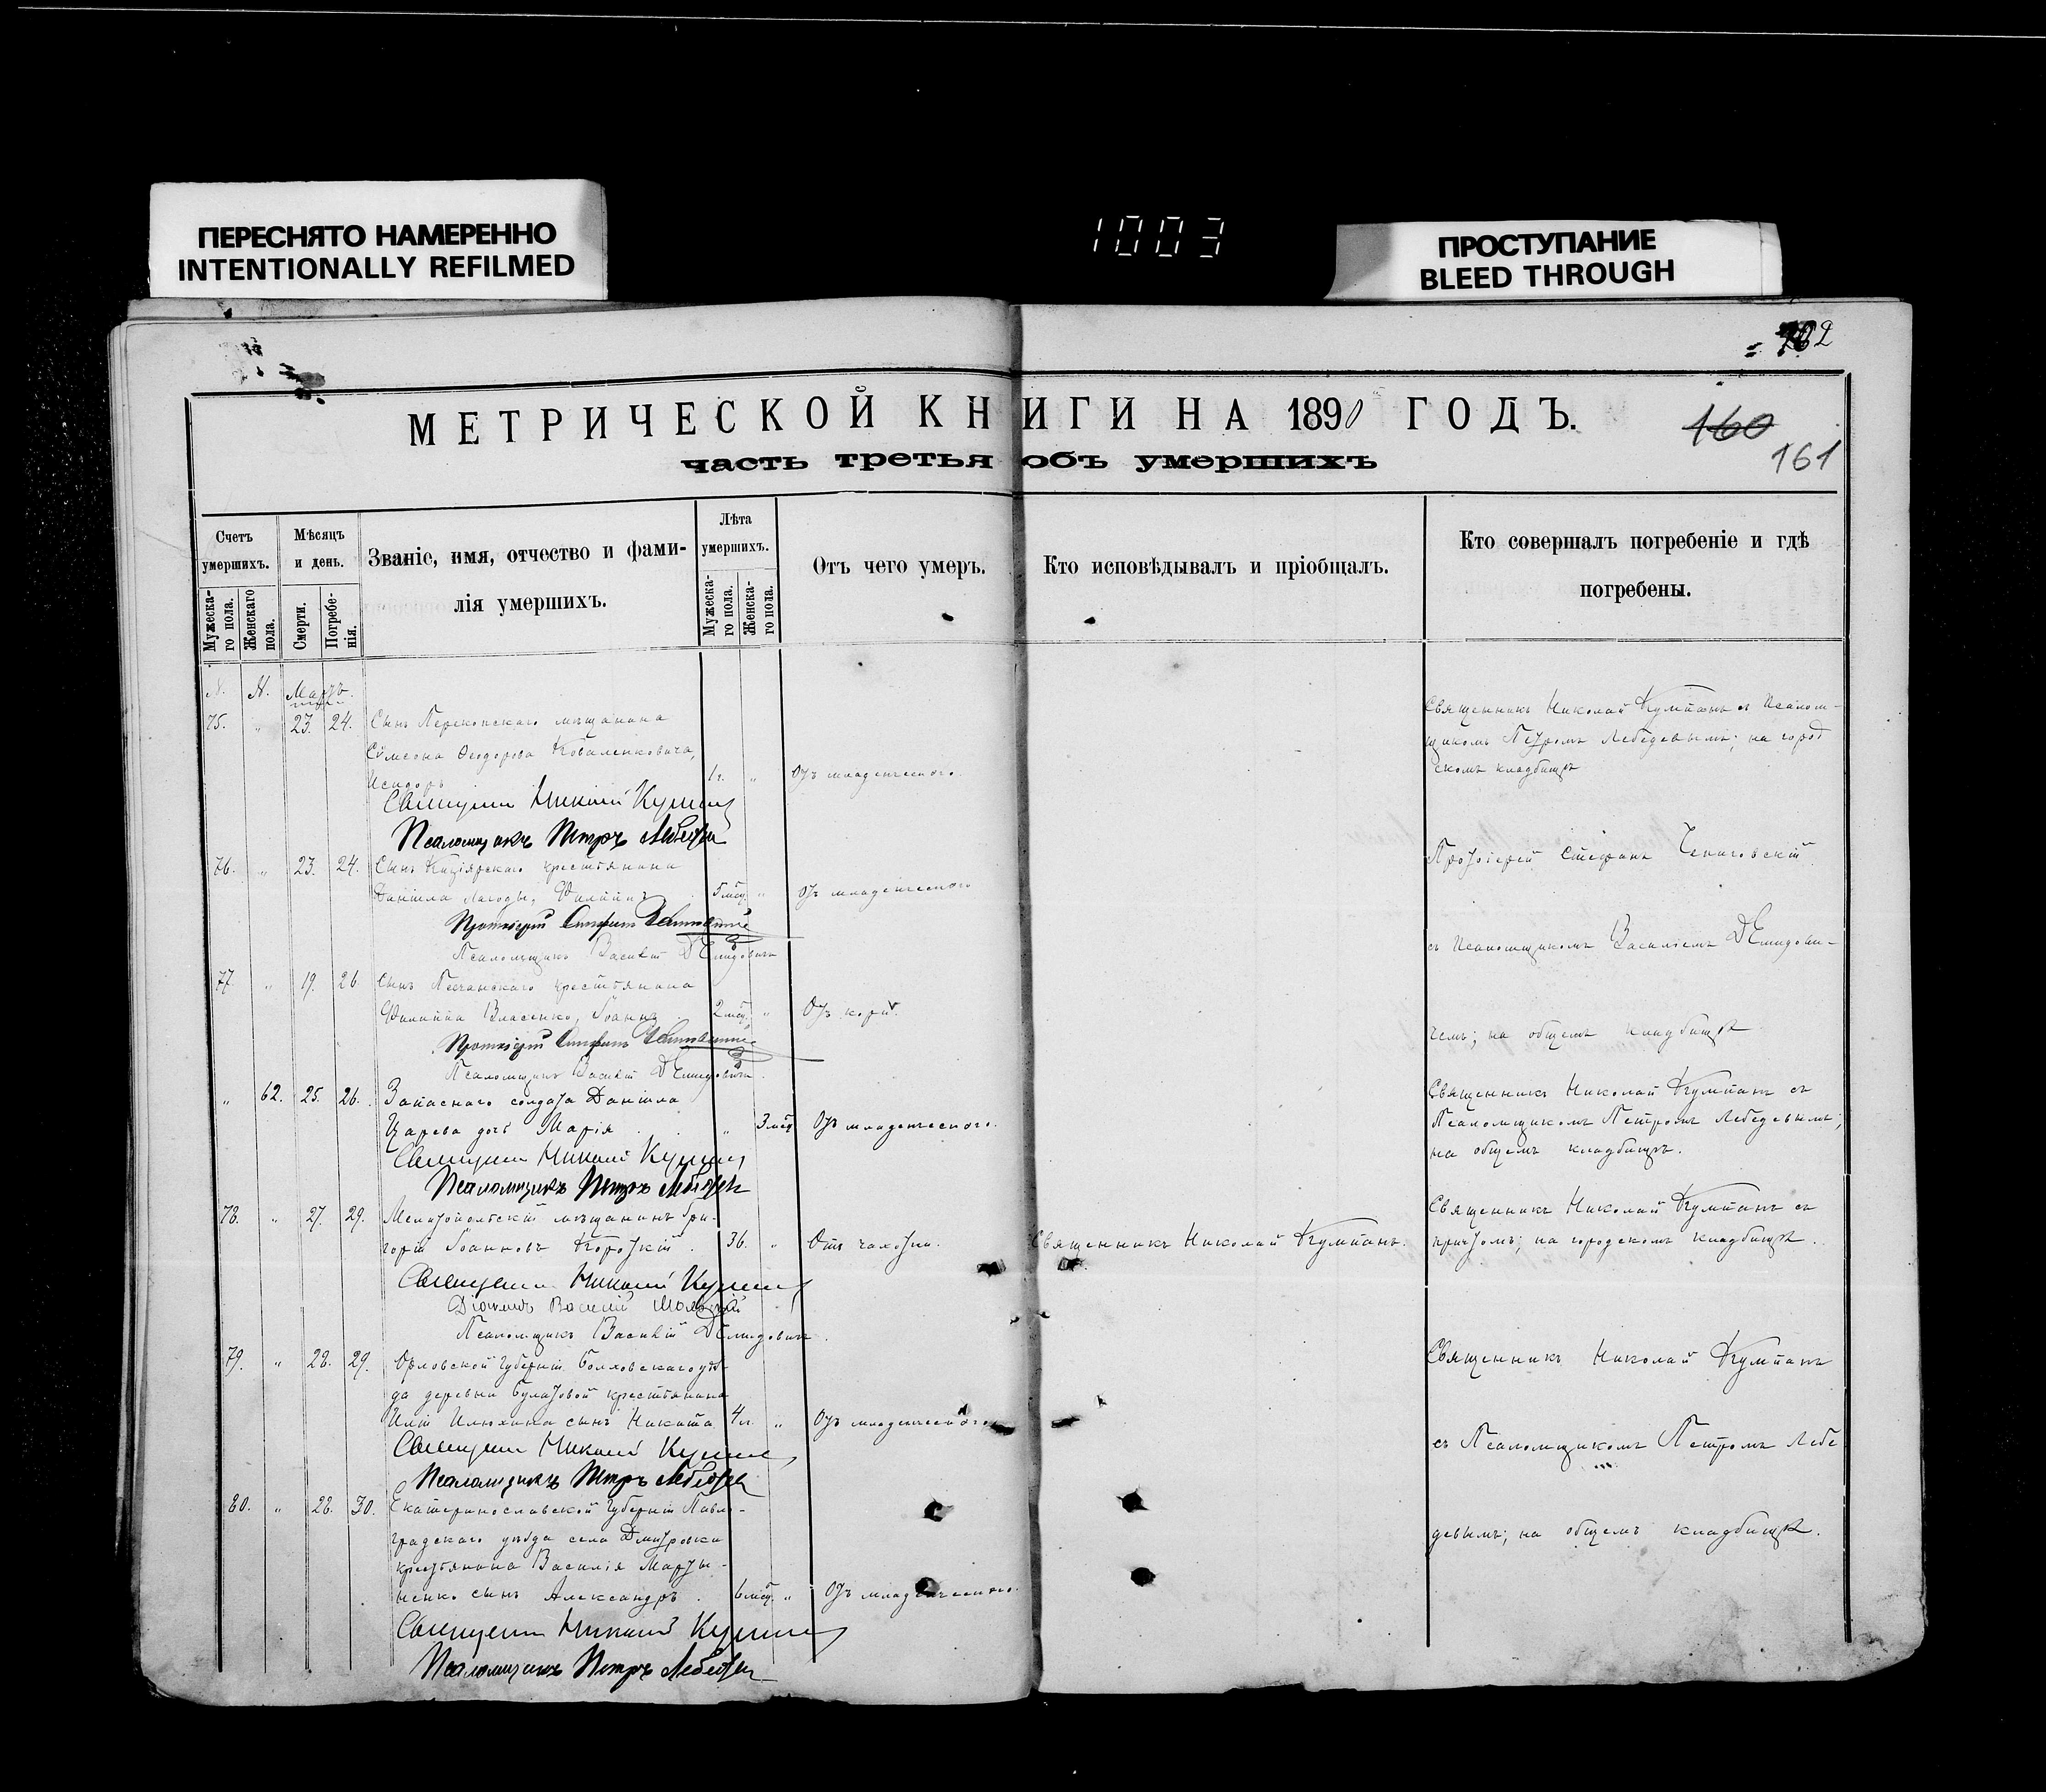 ПЕРЕСНЯТО НАМЕРЕННО
INTENTIONALLY REFILMED
1003
ПРОСТУПАНИЕ
BLEED THROUGH
МЕТРИЧЕСКОЙ КНИГИ НА 1890 ГОДЪ.
160
161
часть третья объ умершихъ
Счетъ умершихъ.
Мужеска-го пола.
Женскаго пола.
Мѣсяцъ и день.
Смерти.
Погребе-нія.
Званіе, имя, отчество и фами-
лія умершихъ.
Лѣта умершихъ.
Мужеска-го пола.
Женска-го пола.
Отъ чего умеръ.
Кто исповѣдывалъ и пріобщалъ.
Кто совершалъ погребеніе и гдѣ
погребены.
N. N. Мартъ.
75. " 23. 24. Сынъ Перекопскаго мѣщанина
Симеона Ѳеодорова Коваленковича,
Исидоръ 1 г. " Отъ младенческаго.
Священникъ Николай Кумпанъ съ Псалом-
щикомъ Петромъ Лебедевымъ; на город
скомъ кладбищѣ
Священникъ Николай Кумпанъ
Псаломщикъ Петръ Лебедевъ
76. " 23. 24. Сынъ крестьянина
Даніила Лагоды, Филиппъ 5 мѣс. " Отъ младенческаго
Протоіерей Стефанъ
Псаломщикъ Василій Демидовичъ
Протоіерей Стефанъ
съ Псаломщикомъ Василіемъ Демидови-
77. " 19. 26. Сынъ Песчанскаго крестьянина
Филиппа Власенко, Іоаннъ 2 мѣс. " Отъ кори.
Протоіерей Стефанъ
Псаломщикъ Василій Демидовичъ
чемъ; на общемъ кладбищѣ
" 62. 25. 26. Запаснаго солдата Даніила
Царева дочь Марія " 3 мѣс. Отъ младенческаго.
Священникъ Николай Кумпанъ
Псаломщикъ Петръ Лебедевъ
Священникъ Николай Кумпанъ съ
Псаломщикомъ Петромъ Лебедевымъ;
на общемъ кладбищѣ.
78. " 27. 29. Мелитопольскій мѣщанинъ Гри-
горій Іоанновъ Короткій. 36. " Отъ чахотки. Священникъ Николай Кумпанъ.
Священникъ Николай Кумпанъ
Діаконъ Василій
Псаломщикъ Василій Демидовичъ
Священникъ Николай Кумпанъ съ
причтомъ; на городскомъ кладбищѣ.
79. " 28. 29. Орловской Губерніи Болховскаго уѣз-
да деревни Булатовой крестьянина
Иліи Илюхина сынъ Никита 4 л. " Отъ младенческаго
Священникъ Николай Кумпанъ
Псаломщикъ Петръ Лебедевъ
Священникъ Николай Кумпанъ
съ Псаломщикомъ Петромъ Лебе
80. " 28. 30. Екатеринославской Губерніи Павло-
градскаго уѣзда села Дмитровки
крестьянина Василія Марты-
ненко сынъ Александръ. 6 мѣс. " Отъ младенческаго.
Священникъ Николай Кумпанъ
Псаломщикъ Петръ Лебедевъ
девымъ; на общемъ кладбищѣ.